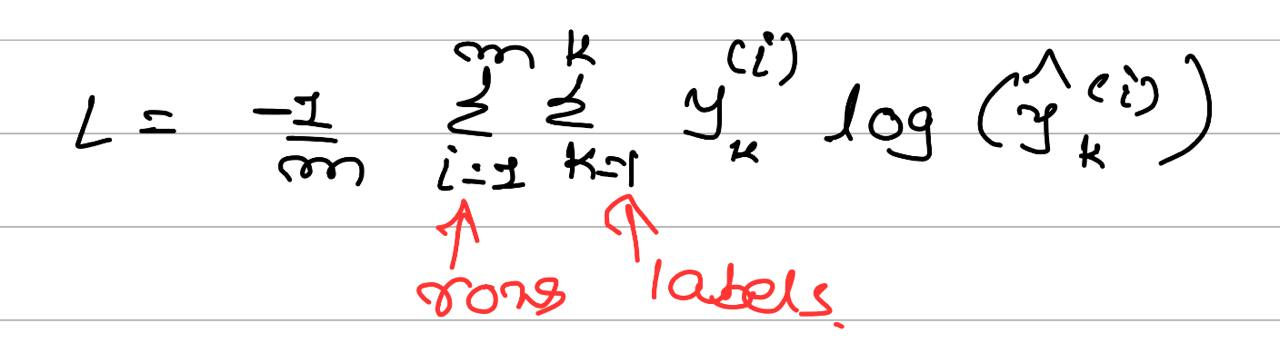 L = -1/m m∑i=1 k∑k=1 y_k^(i) log (ŷ_k^(i))
rows labels.